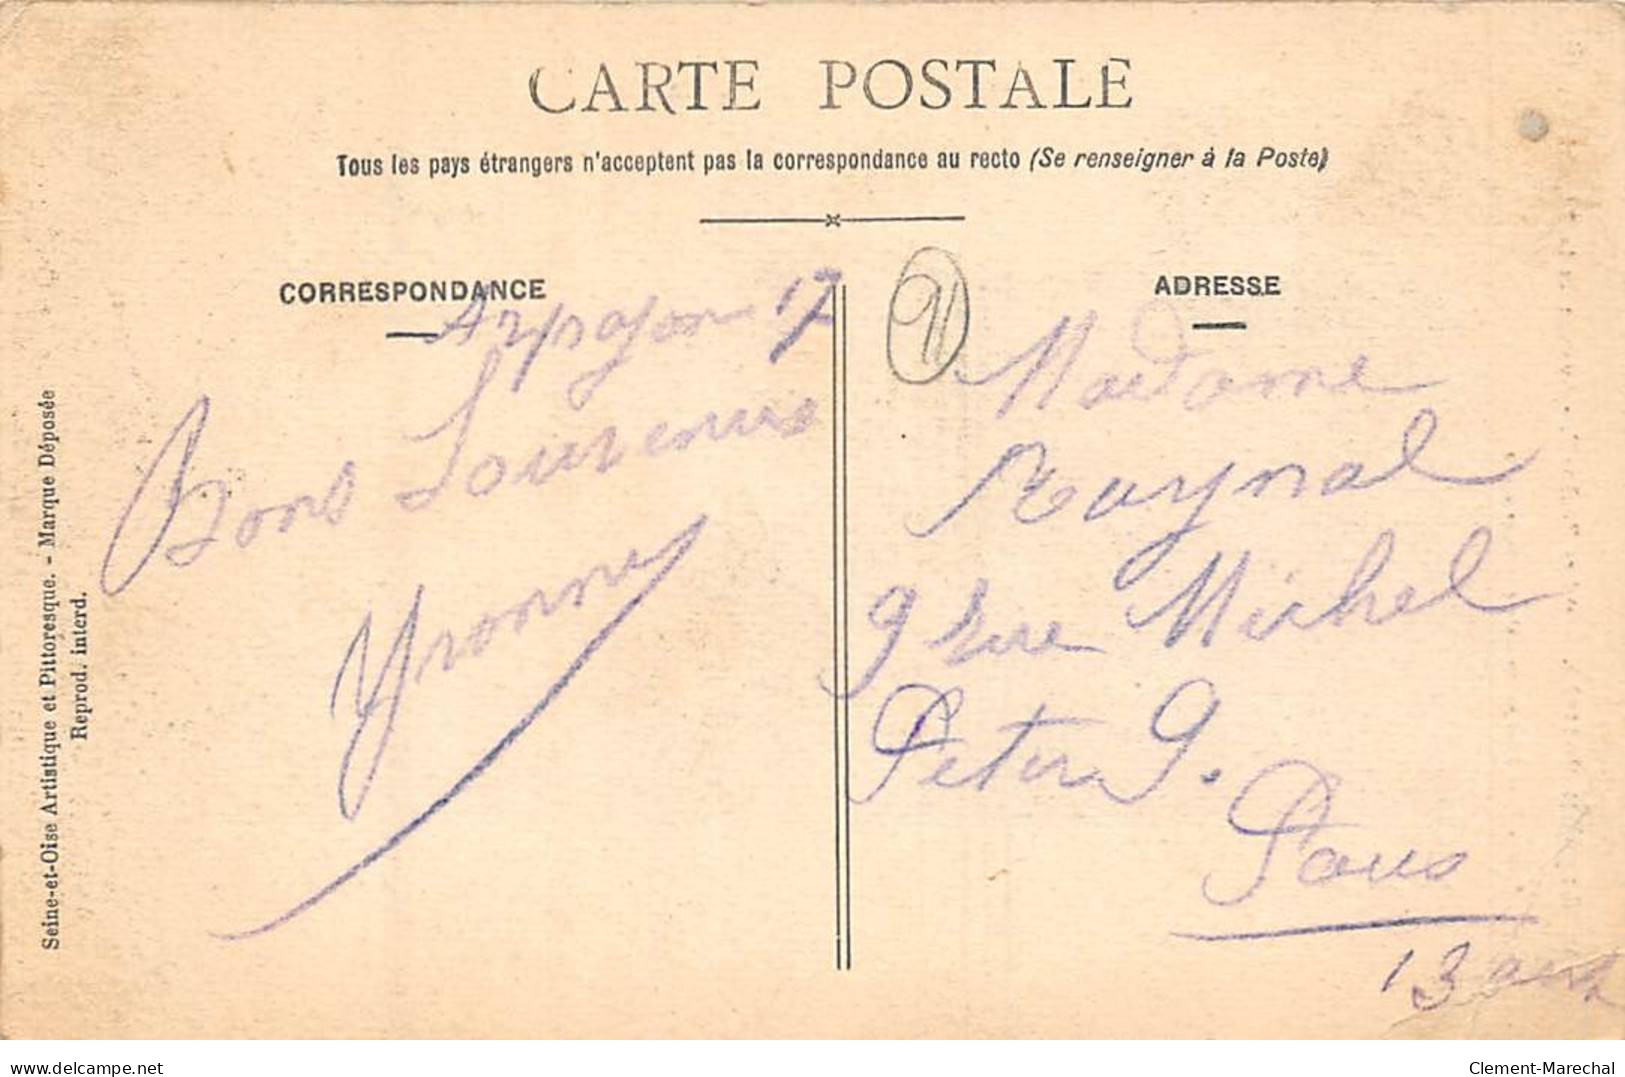 CARTE POSTALE
Tous les pays étrangers n'acceptent pas la correspondance au recto (Se renseigner à la Poste)
CORRESPONDANCE
Arpajon 17
Bons Souvenirs
Yvonne
ADRESSE
91
Madame
Raynal
9 rue Michel
Peter 9.
Paris
13 arr
Seine-et-Oise Artistique et Pittoresque. - Marque Déposée
Reprod. interd.
delcampe.net
Clement-Marechal